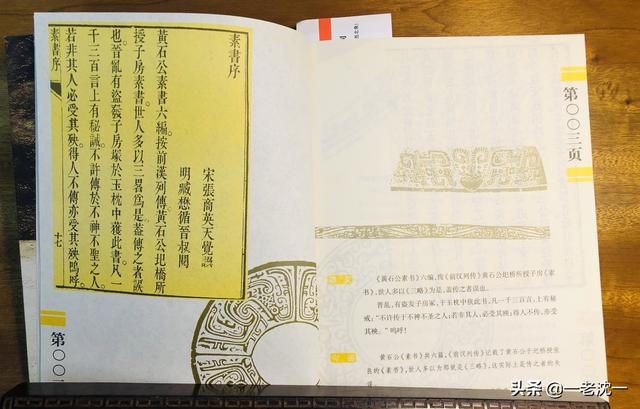 素書序
宋張商英天覺譔
明臧懋循晉叔閱
黃石公素書六編按前漢列傳黃石公圯橋所
授子房素書世人多以三畧爲是蓋傳之者誤
也晉亂有盜發子房塚於玉枕中獲此書凡一
千三百言上有秘誡不許傳於不神不聖之人
若非其人必受其殃得人不傳亦受其殃嗚呼
素書序
十七
第〇〇
第〇〇三页
《黄石公素书》六编，按《前汉列传》黄石公圯桥所授子房《素
书》，世人多以《三略》为是，盖传之者误也。
晋乱，有盗发子房冢，于玉枕中获此书，凡一千三百言，上有秘
戒：“不许传于不神不圣之人；若非其人，必受其殃；得人不传，亦受
其殃。”呜呼！
黄石公《素书》共六篇，《前汉列传》记载了黄石公于圯桥授张
良的《素书》，世人多以为那就是《三略》，这实际上是传之者的失
误
头条 @一老沈一